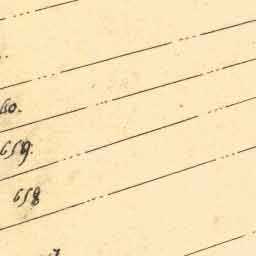 60.
659.
658